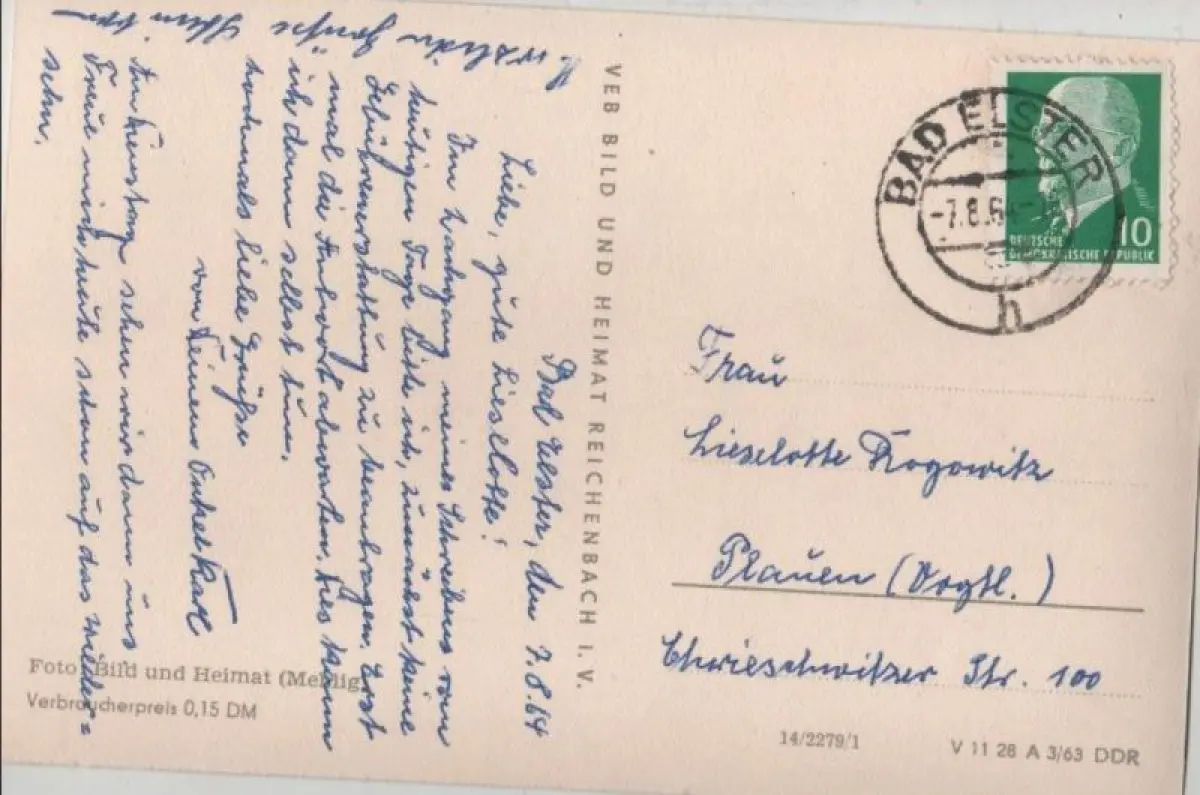 Bad Elster, den 7.8.64
Liebe, gute Lieslotte!
Im Nachgang meines Schreibens vom
heutigen Tage bitte ich, zunächst keine
Gebührenerstattung zu beantragen. Erst
mal die Antwort abwarten. Dies kann
ich dann selbst tun.
Nochmals liebe Grüße
von Deinem Onkel Karl
Am Dienstag sehen wir dann uns
Freue mich heute schon auf das Wieder=
sehn.
Herzliche Grüße
VEB BILD UND HEIMAT REICHENBACH I. V.
BAD ELSTER
-7.8.64
h
10
DEUTSCHE
DEMOKRATISCHE REPUBLIK
Frau
Lieselotte Rogowitz
Plauen (Vogtl.)
Chrieschwitzer Str. 100
Foto: Bild und Heimat (Mehlig)
Verbraucherpreis 0,15 DM
14/2279/1
V 11 28 A 3/63 DDR